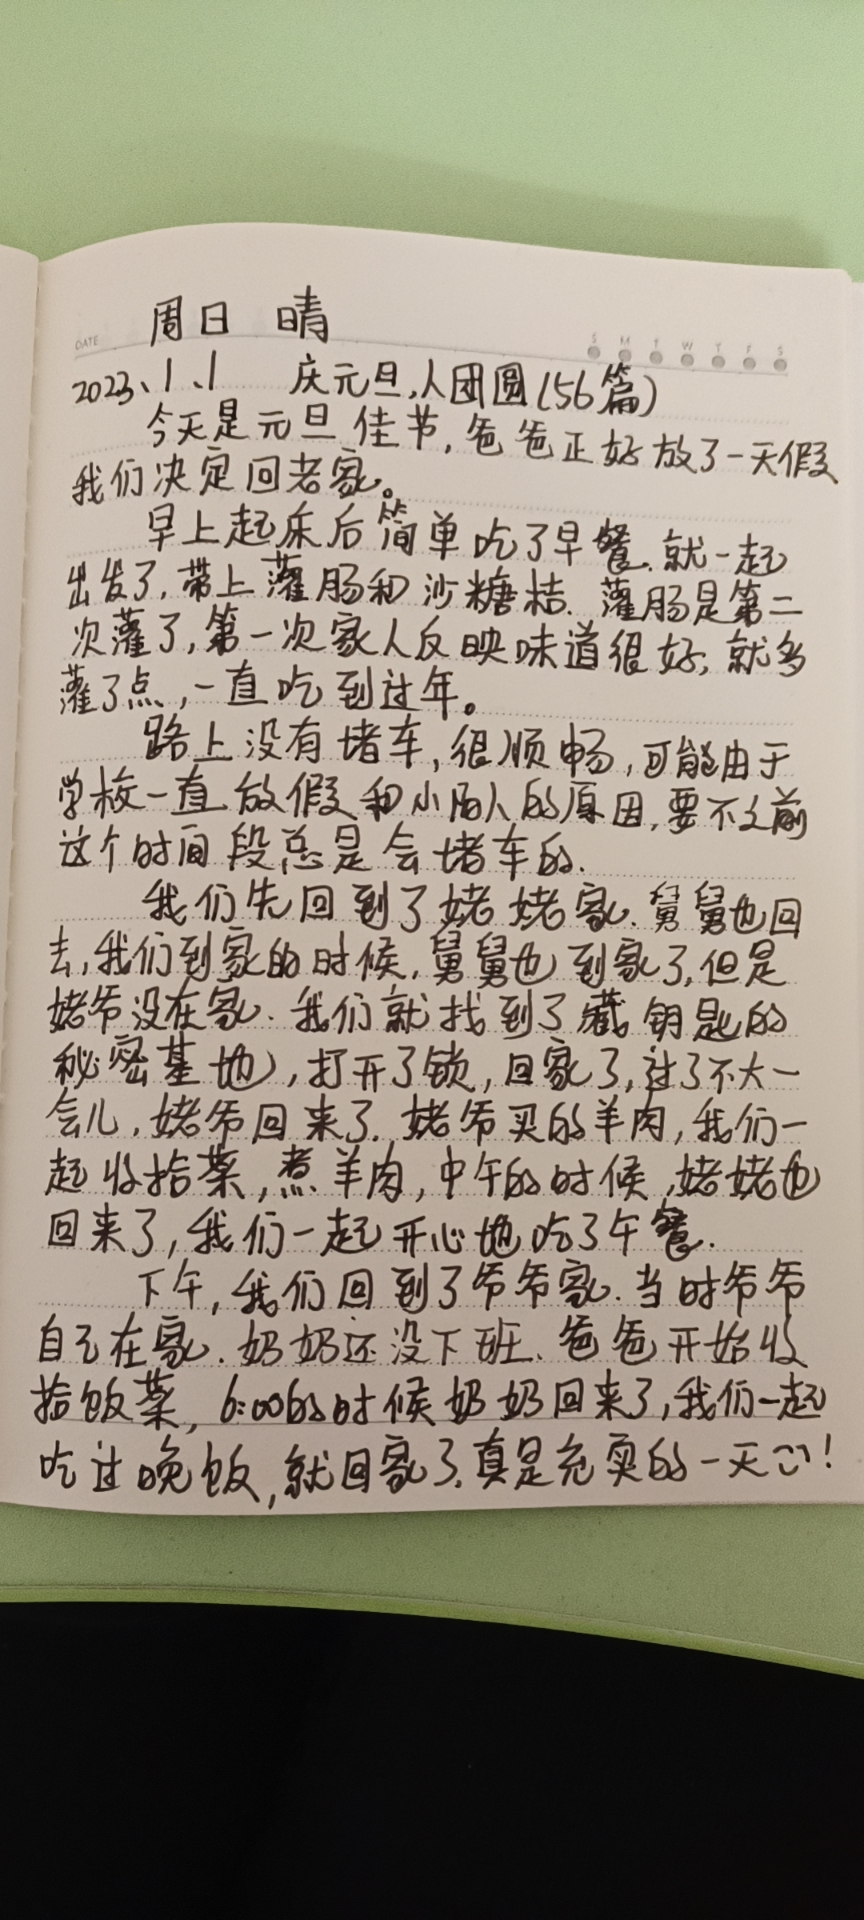 周日 晴
DATE S M T W T F S
2023、1、1 庆元旦,人团圆(56篇)
今天是元旦佳节,爸爸正好放了一天假
我们决定回老家。
早上起床后简单吃了早餐.就一起
出发了,带上灌肠和沙糖桔.灌肠是第二
次灌了,第一次家人反映味道很好,就多
灌了点,一直吃到过年。
路上没有堵车,很顺畅,可能由于
学校一直放假和小阳人的原因,要不之前
这个时间段总是会堵车的.
我们先回到了姥姥家.舅舅也回
去,我们到家的时候,舅舅也到家了,但是
姥爷没在家.我们就找到了藏钥匙的
秘密基地),打开了锁,回家了,过了不大一
会儿,姥爷回来了.姥爷买的羊肉,我们一
起收拾菜,煮羊肉,中午的时候,姥姥也
回来了,我们一起开心地吃了午餐.
下午,我们回到了爷爷家.当时爷爷
自己在家.奶奶还没下班.爸爸开始收
拾饭菜,6:00的时候奶奶回来了,我们一起
吃过晚饭,就回家了.真是充实的一天!